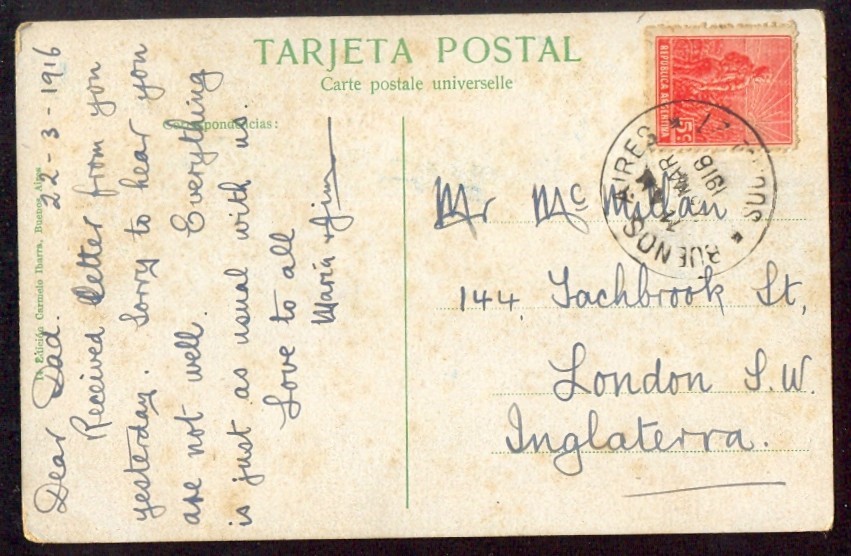 TARJETA POSTAL
Carte postale universelle
Correspondencias:
22-3-1916
Dear Dad.
Received letter from you
yesterday. Sorry to hear you
are not well. Everything
is just as usual with us.
Love to all
Maria & Jim
1a Edición Carmelo Ibarra, Buenos Aires
REPUBLICA ARGENTINA
5c
BUENOS AIRES
MAR
1916
Mr Mc Millan
144, Tachbrook St,
London S.W.
Inglaterra.